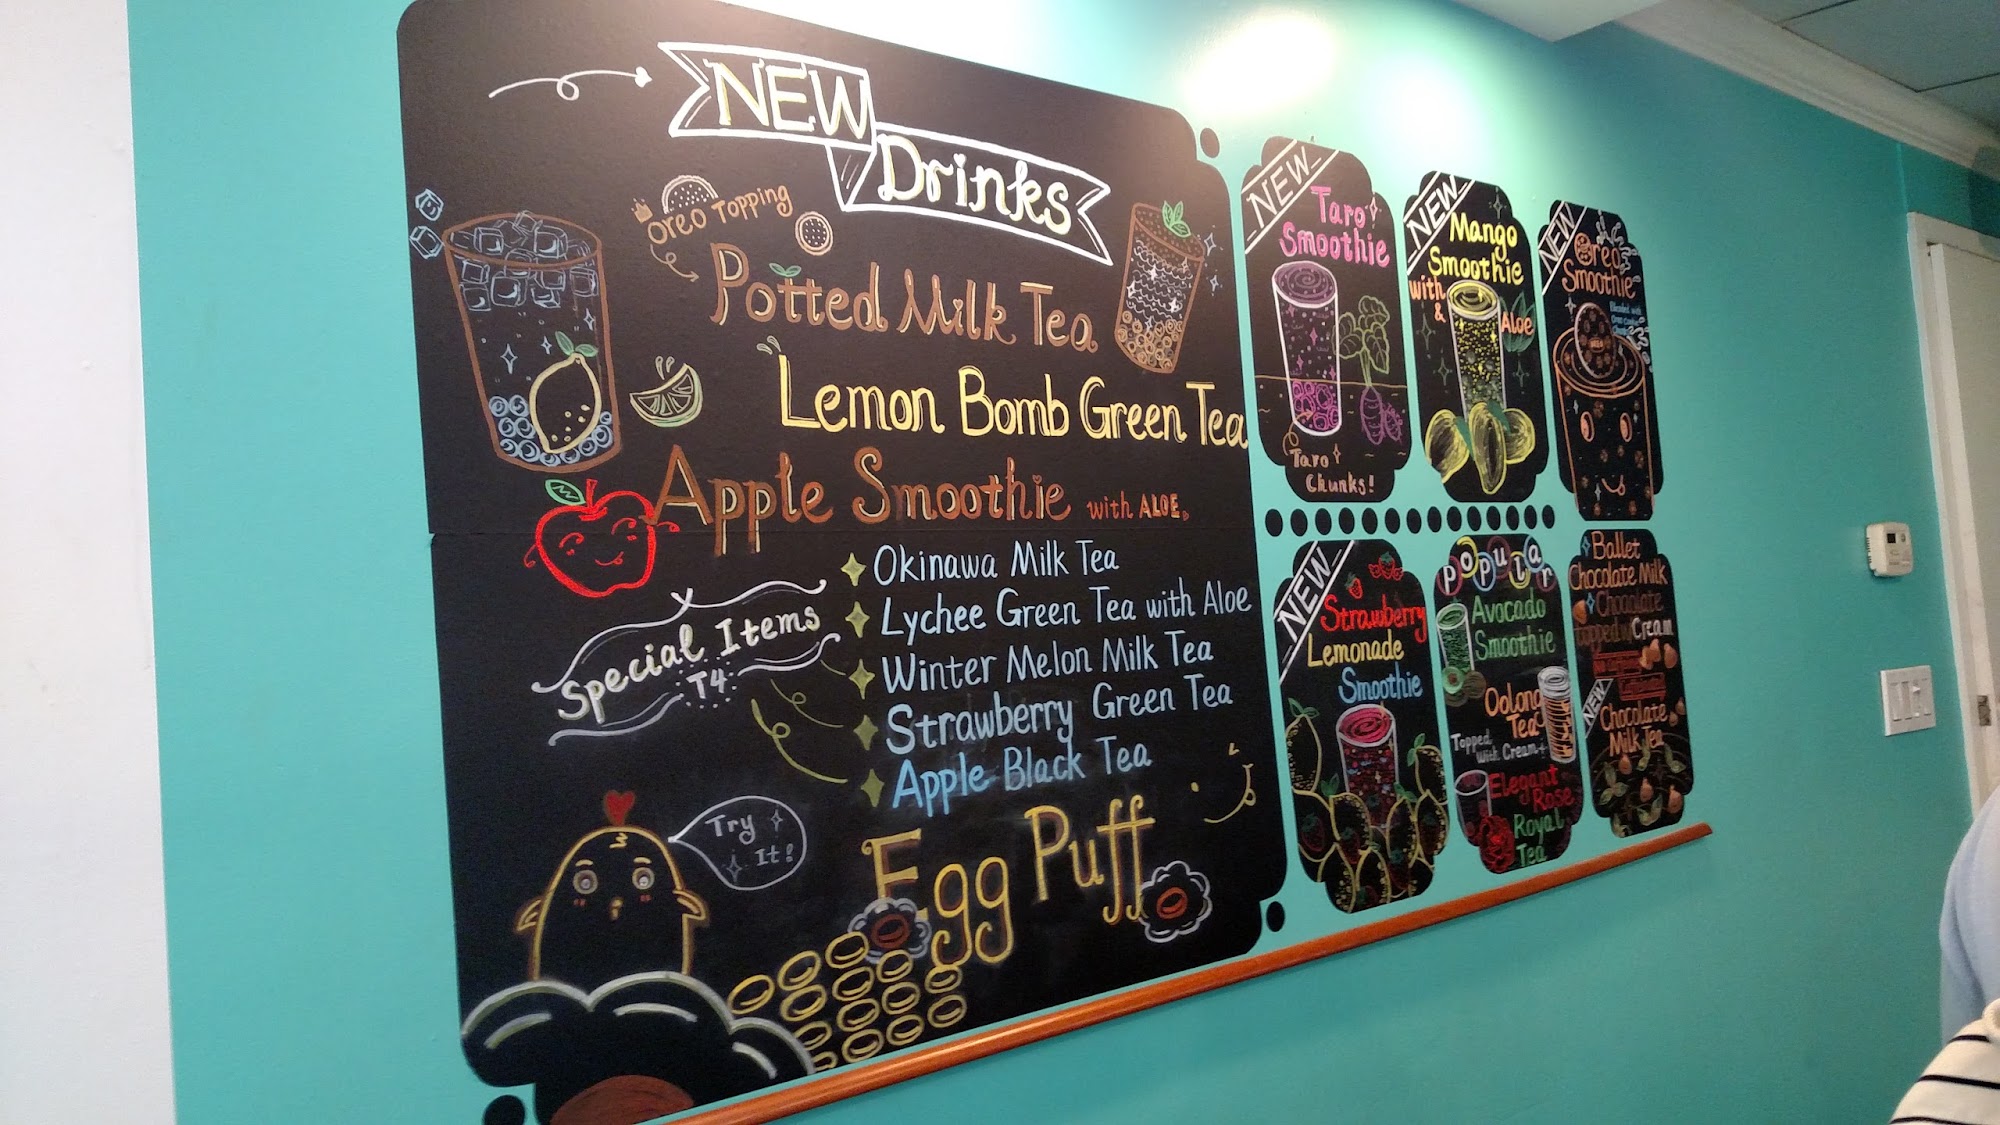 NEW
Drinks
Oreo Topping
Potted Milk Tea
Lemon Bomb Green Tea
Apple Smoothie with ALOE
Special Items
T4
Okinawa Milk Tea
Lychee Green Tea with Aloe
Winter Melon Milk Tea
Strawberry Green Tea
Apple Black Tea
Try
It!
Egg Puff
NEW
Taro
Smoothie
Taro
Chunks!
NEW
Mango
Smoothie
with
&
Aloe
NEW
Oreo
Smoothie
Blended with
NEW
Strawberry
Lemonade
Smoothie
Popular
Avocado
Smoothie
Oolong
Tea
Topped
with Cream
Elegant
Rose
Royal
Tea
Ballet
Chocolate Milk
Chocolate
topped w/ Cream
NEW
Chocolate
Milk Tea